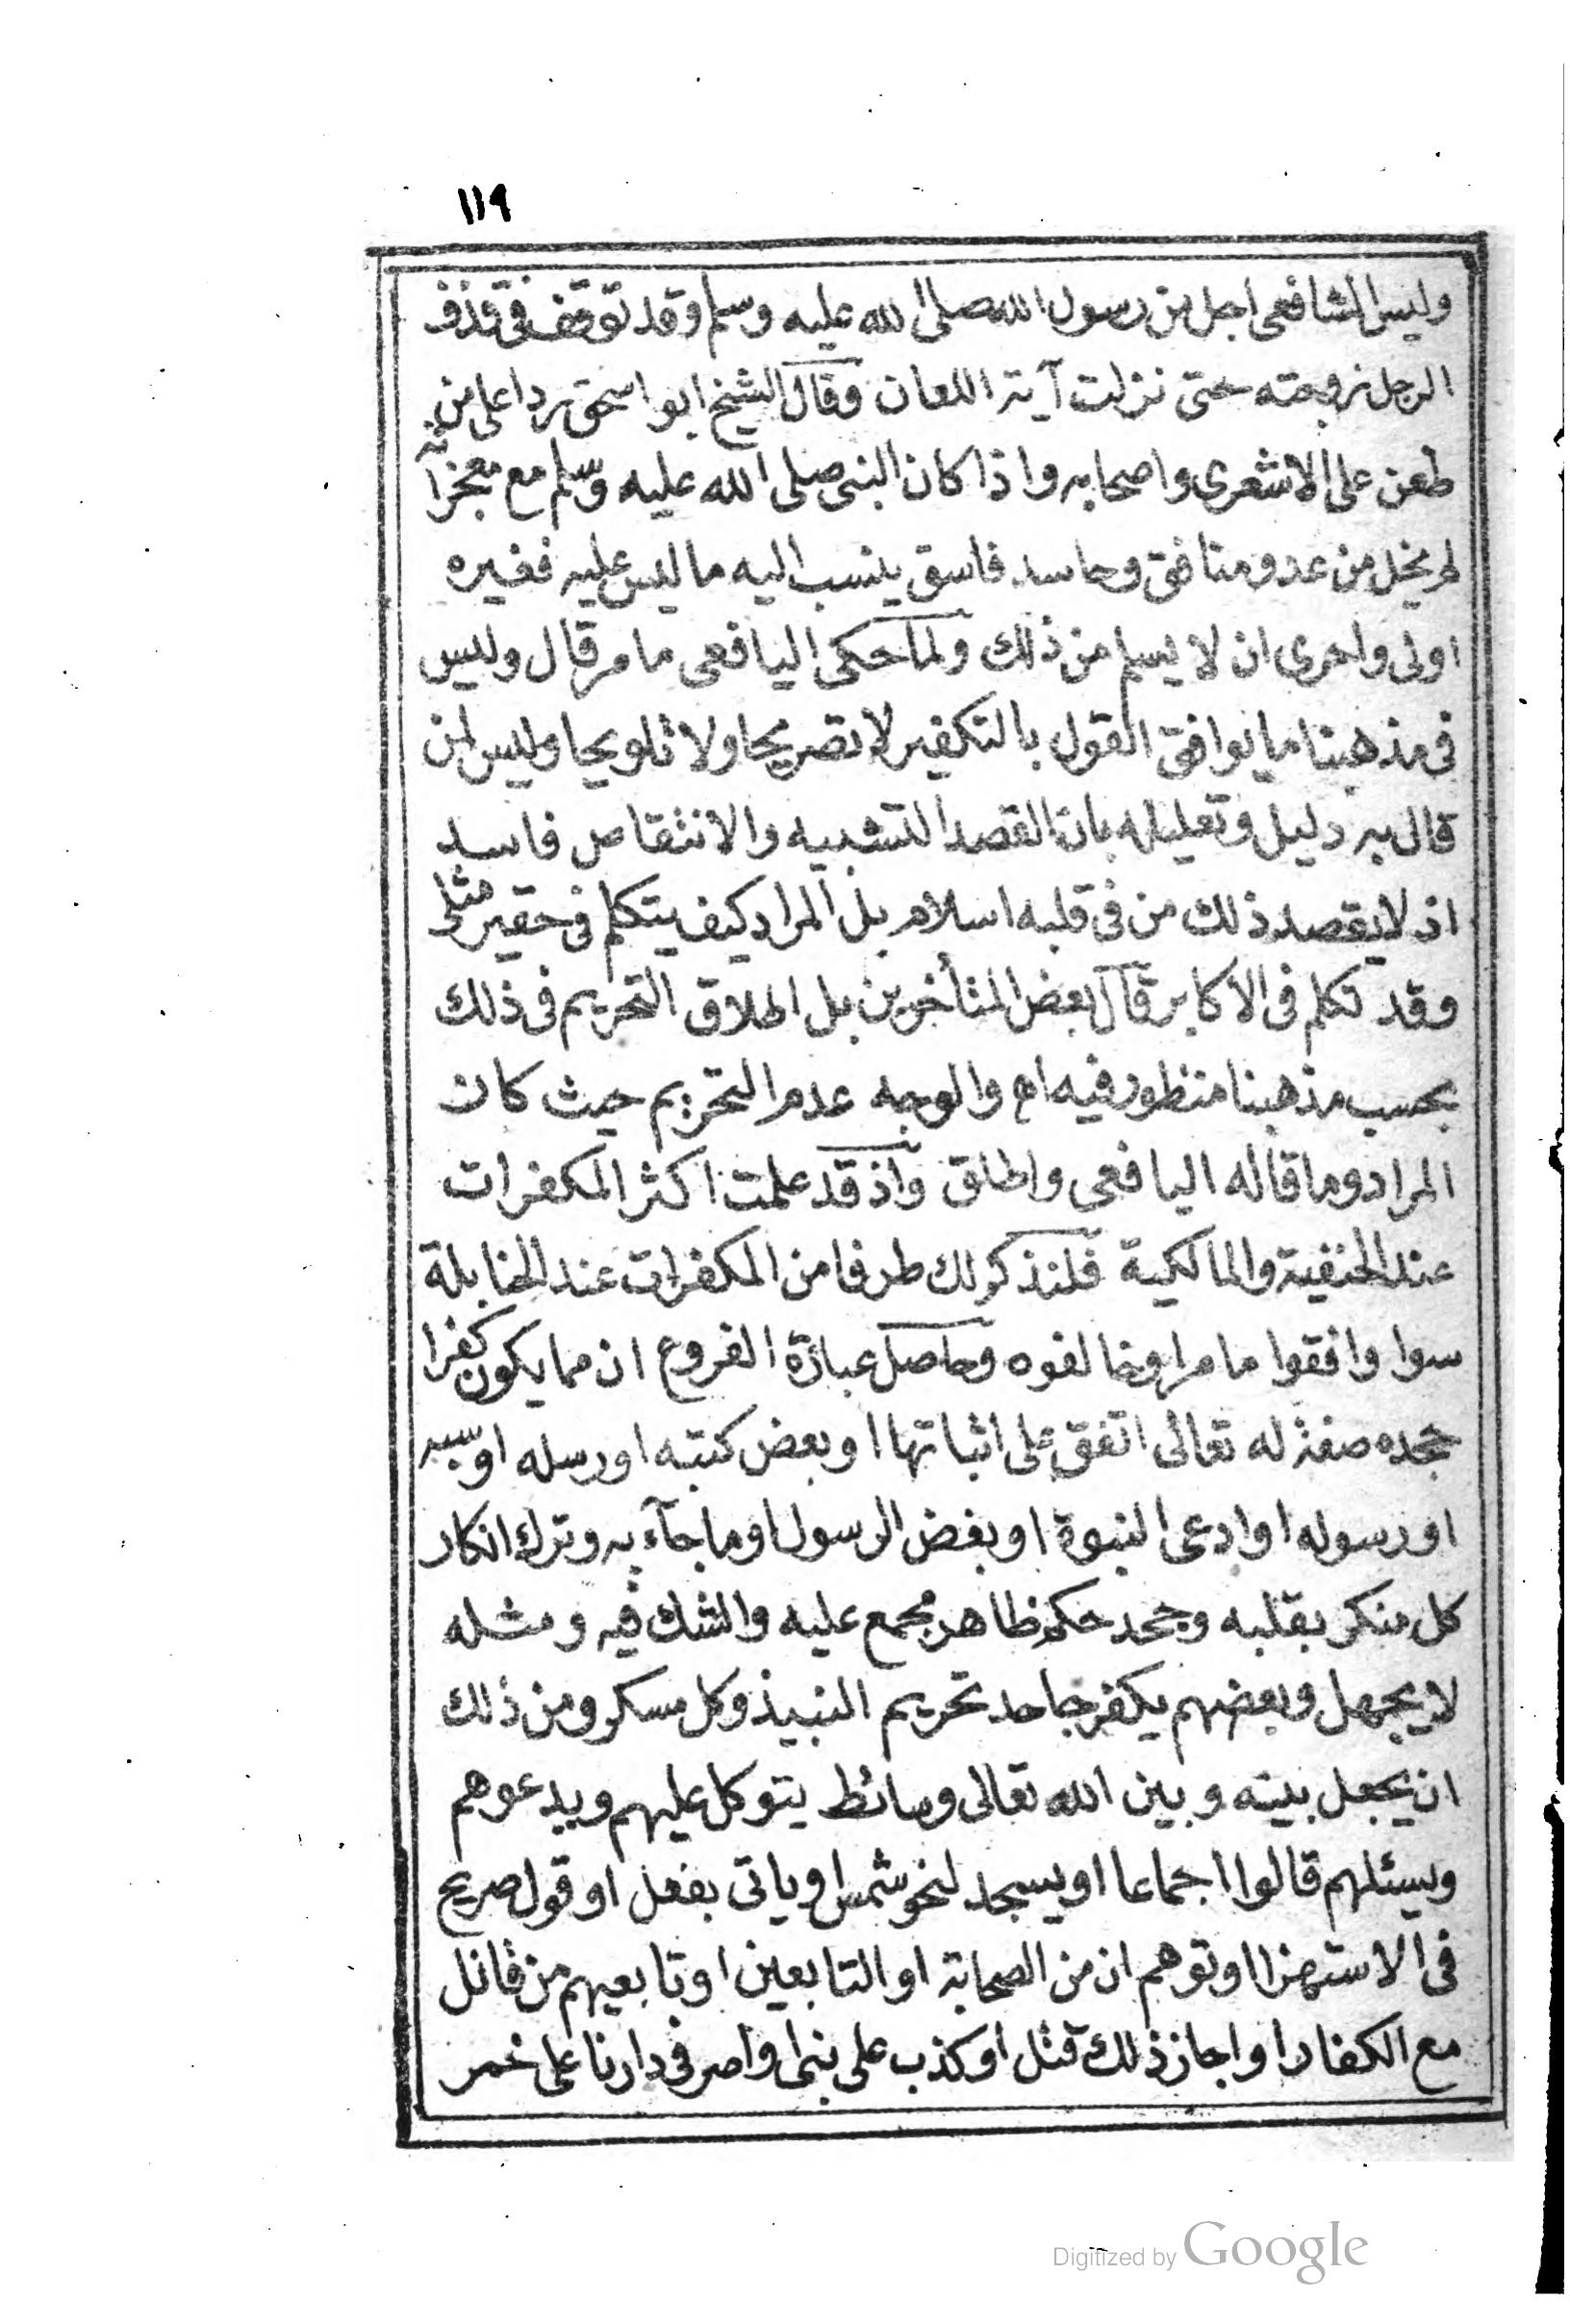 ١١٩
وليس الشافعى اجل من رسول الله صلى الله عليه وسلم وقد توقف فى قذف
الرجل زوجته حتى نزلت آية اللعان وقال الشيخ ابو اسحق ردا على من
طعن على الاشعرى واصحابه واذا كان النبى صلى الله عليه وسلم مع معجزآ
لم يخل من عدو منافق وحاسد فاسق ينسب اليه ما ليس عليه فغيره
اولى واحرى ان لا يسلم من ذلك ولما حكى اليافعى ما مر قال وليس
فى مذهبنا ما يوافق القول بالتكفير لا تصريحا ولا تلويحا وليس لمن
قال به دليل وتعليله بان القصد التشبيه والانتقاص فاسد
اذ لا يقصد ذلك من فى قلبه اسلام بل المراد كيف يتكلم فى حقير مثلى
وقد تكلم فى الاكابر قال بعض المتأخرين بل اطلاق التحريم فى ذلك
بحسب مذهبنا منظور فيه اه والوجه عدم التحريم حيث كان
المراد وما قاله اليافعى واطلق واذ قد علمت اكثر المكفرات
عند الحنفية والمالكية فلنذكر لك طرفا من المكفرات عند الحنابلة
سوا وافقوا ما مر او خالفوه وحاصل عبارة الفروع ان مما يكون كفرا
جحده صفة له تعالى اتفق على اثباتها او بعض كتبه او رسله او سبه
او رسوله او ادعى النبوة او بغض الرسول او ما جآء به وترك انكار
كل منكر بقلبه وجحد حكم ظاهر مجمع عليه والشك فيه ومثله
لا يجهل وبعضهم يكفر جاحد تحريم النبيذ وكل مسكر ومن ذلك
ان يجعل بينه وبين الله تعالى وسائط يتوكل عليهم ويدعوهم
ويسئلهم قالوا اجماعا او يسجد لنحو شمس او ياتى بفعل او قول صريح
فى الاستهزا او توهم ان من الصحابة او التابعين او تابعيهم من قاتل
مع الكفار او اجاز ذلك قتل او كذب على نبى او اصر فى دارنا على خمر
Digitized by Google